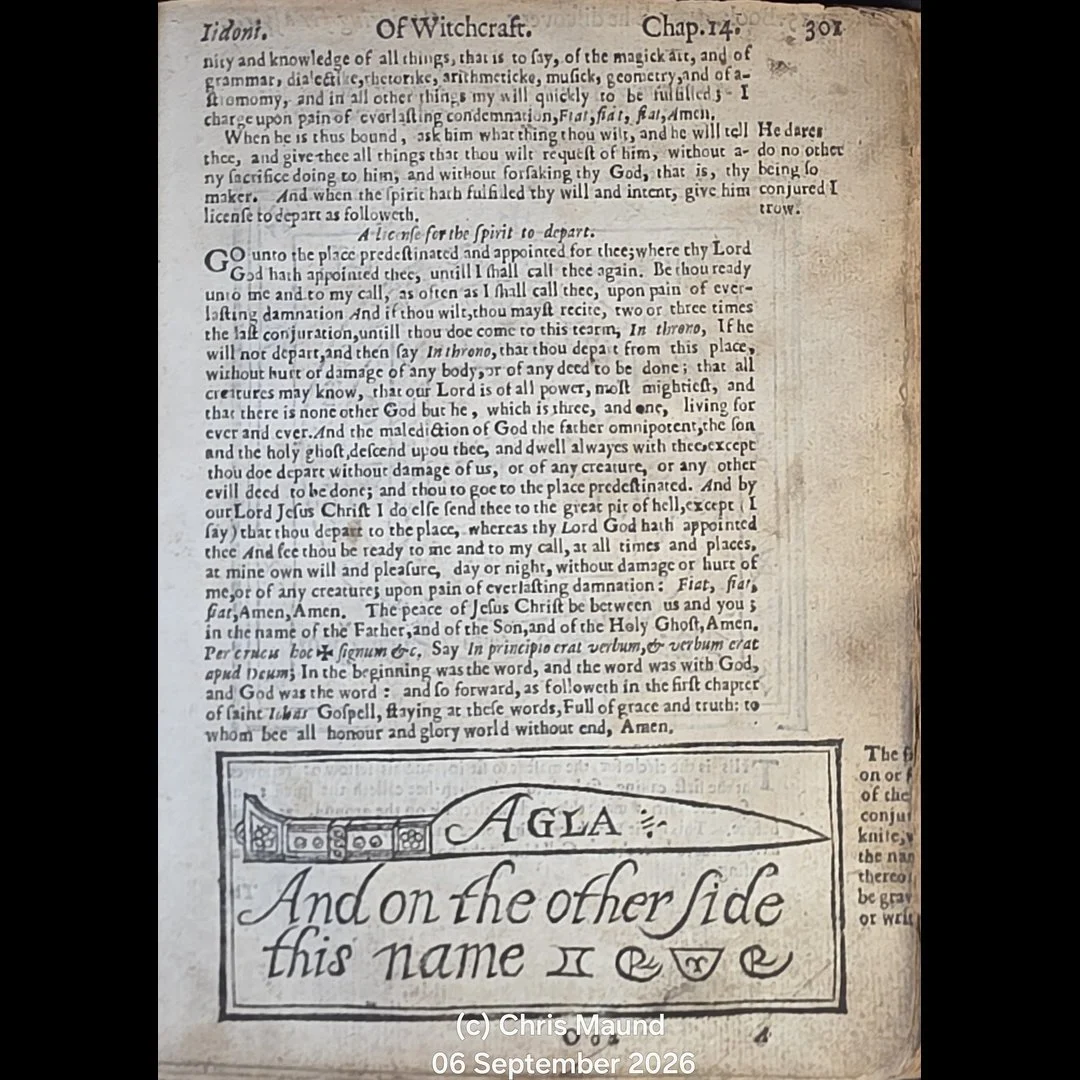 Iidoni. Of Witchcraft. Chap.14. 301
nity and knowledge of all things, that is to ſay, of the magick art, and of
grammar, dialectike, rhetorike, arithmeticke, muſick, geometry, and of a-
ſtromomy, and in all other things my will quickly to be fulfilled; I
charge upon pain of everlaſting condemnation, Fiat, fiat, fiat, Amen.
When he is thus bound, ask him what thing thou wilt, and he will tell
thee, and give thee all things that thou wilt requeſt of him, without a-
ny ſacrifice doing to him, and without forſaking thy God, that is, thy
maker. And when the ſpirit hath fulfilled thy will and intent, give him
licenſe to depart as followeth.
He dares
do no other
being ſo
conjured I
trow.
A licenſe for the ſpirit to depart.
GO unto the place predeſtinated and appointed for thee; where thy Lord
God hath appointed thee, untill I ſhall call thee again. Be thou ready
unto me and to my call, as often as I ſhall call thee, upon pain of ever-
laſting damnation And if thou wilt, thou mayſt recite, two or three times
the laſt conjuration, untill thou doe come to this tearm, In throno, If he
will not depart, and then ſay In throno, that thou depart from this place,
without hurt or damage of any body, or of any deed to be done; that all
creatures may know, that our Lord is of all power, moſt mightieſt, and
that there is none other God but he, which is three, and one, living for
ever and ever. And the malediction of God the father omnipotent, the ſon
and the holy ghoſt, deſcend upou thee, and dwell alwayes with thee, except
thou doe depart without damage of us, or of any creature, or any other
evill deed to be done; and thou to goe to the place predeſtinated. And by
our Lord Jeſus Chriſt I do elſe ſend thee to the great pit of hell, except (I
ſay) that thou depart to the place, whereas thy Lord God hath appointed
thee And ſee thou be ready to me and to my call, at all times and places,
at mine own will and pleaſure, day or night, without damage or hurt of
me, or of any creature; upon pain of everlaſting damnation: Fiat, fiat,
fiat, Amen, Amen. The peace of Jeſus Chriſt be between us and you;
in the name of the Father, and of the Son, and of the Holy Ghoſt, Amen.
Per crucis hoc ✠ ſignum &c, Say In principio erat verbum, & verbum erat
apud Deum; In the beginning was the word, and the word was with God,
and God was the word: and ſo forward, as followeth in the firſt chapter
of ſaint Goſpell, ſtaying at theſe words, Full of grace and truth: to
whom bee all honour and glory world without end, Amen.
AGLA
And on the other ſide
this name
The
on or
of the
knife,
the
be
or
(c) Chris Maund
06 September 2026